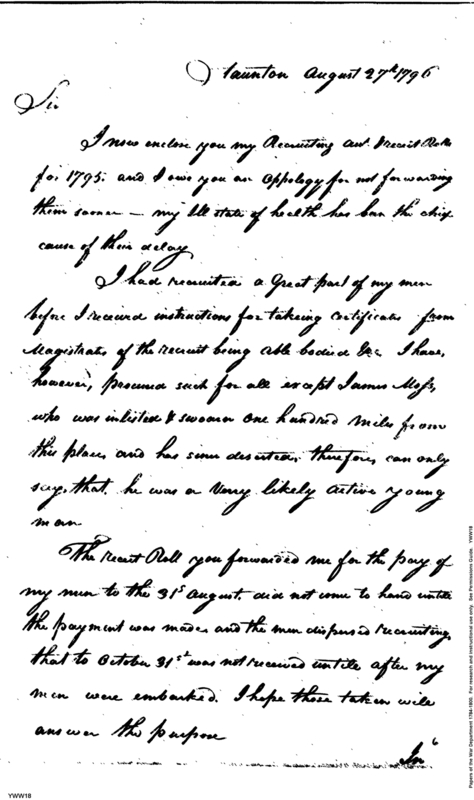 Staunton August 27th 1796
Sir
I now enclose you my Recruiting and receit Rolls
for 1795. and I owe you an Oppology for not forwarding
them sooner — my Ill state of health has ben the chief
cause of their delay
I had recruited a Great part of my men
before I received instructions for takeing certificates from
Magistrates of the recruit being able bodied &c. I have,
however, procured such for all except James Moss,
who was inlisted & swoarn one hundred miles from
this place, and has since deserted, therefore, can only
say, that, he was a Very likely active young
man
The receit Roll you forwarded me for the pay of
my men to the 31st August. did not come to hand untile
the payment was made and the men dispersed recruiting,
that to October 31st was not received untile after my
men were embarked. I hope those taken will
answer the purpose
In
Papers of the War Department 1784-1800. For research and instructional use only. See Permissions Guide. YWW18
YWW18